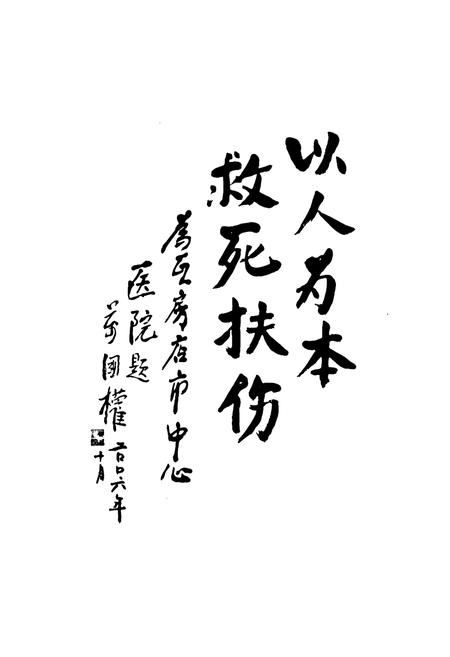 以人为本
救死扶伤
为瓦房店市中心
医院题
万国權
二〇〇六年
十月